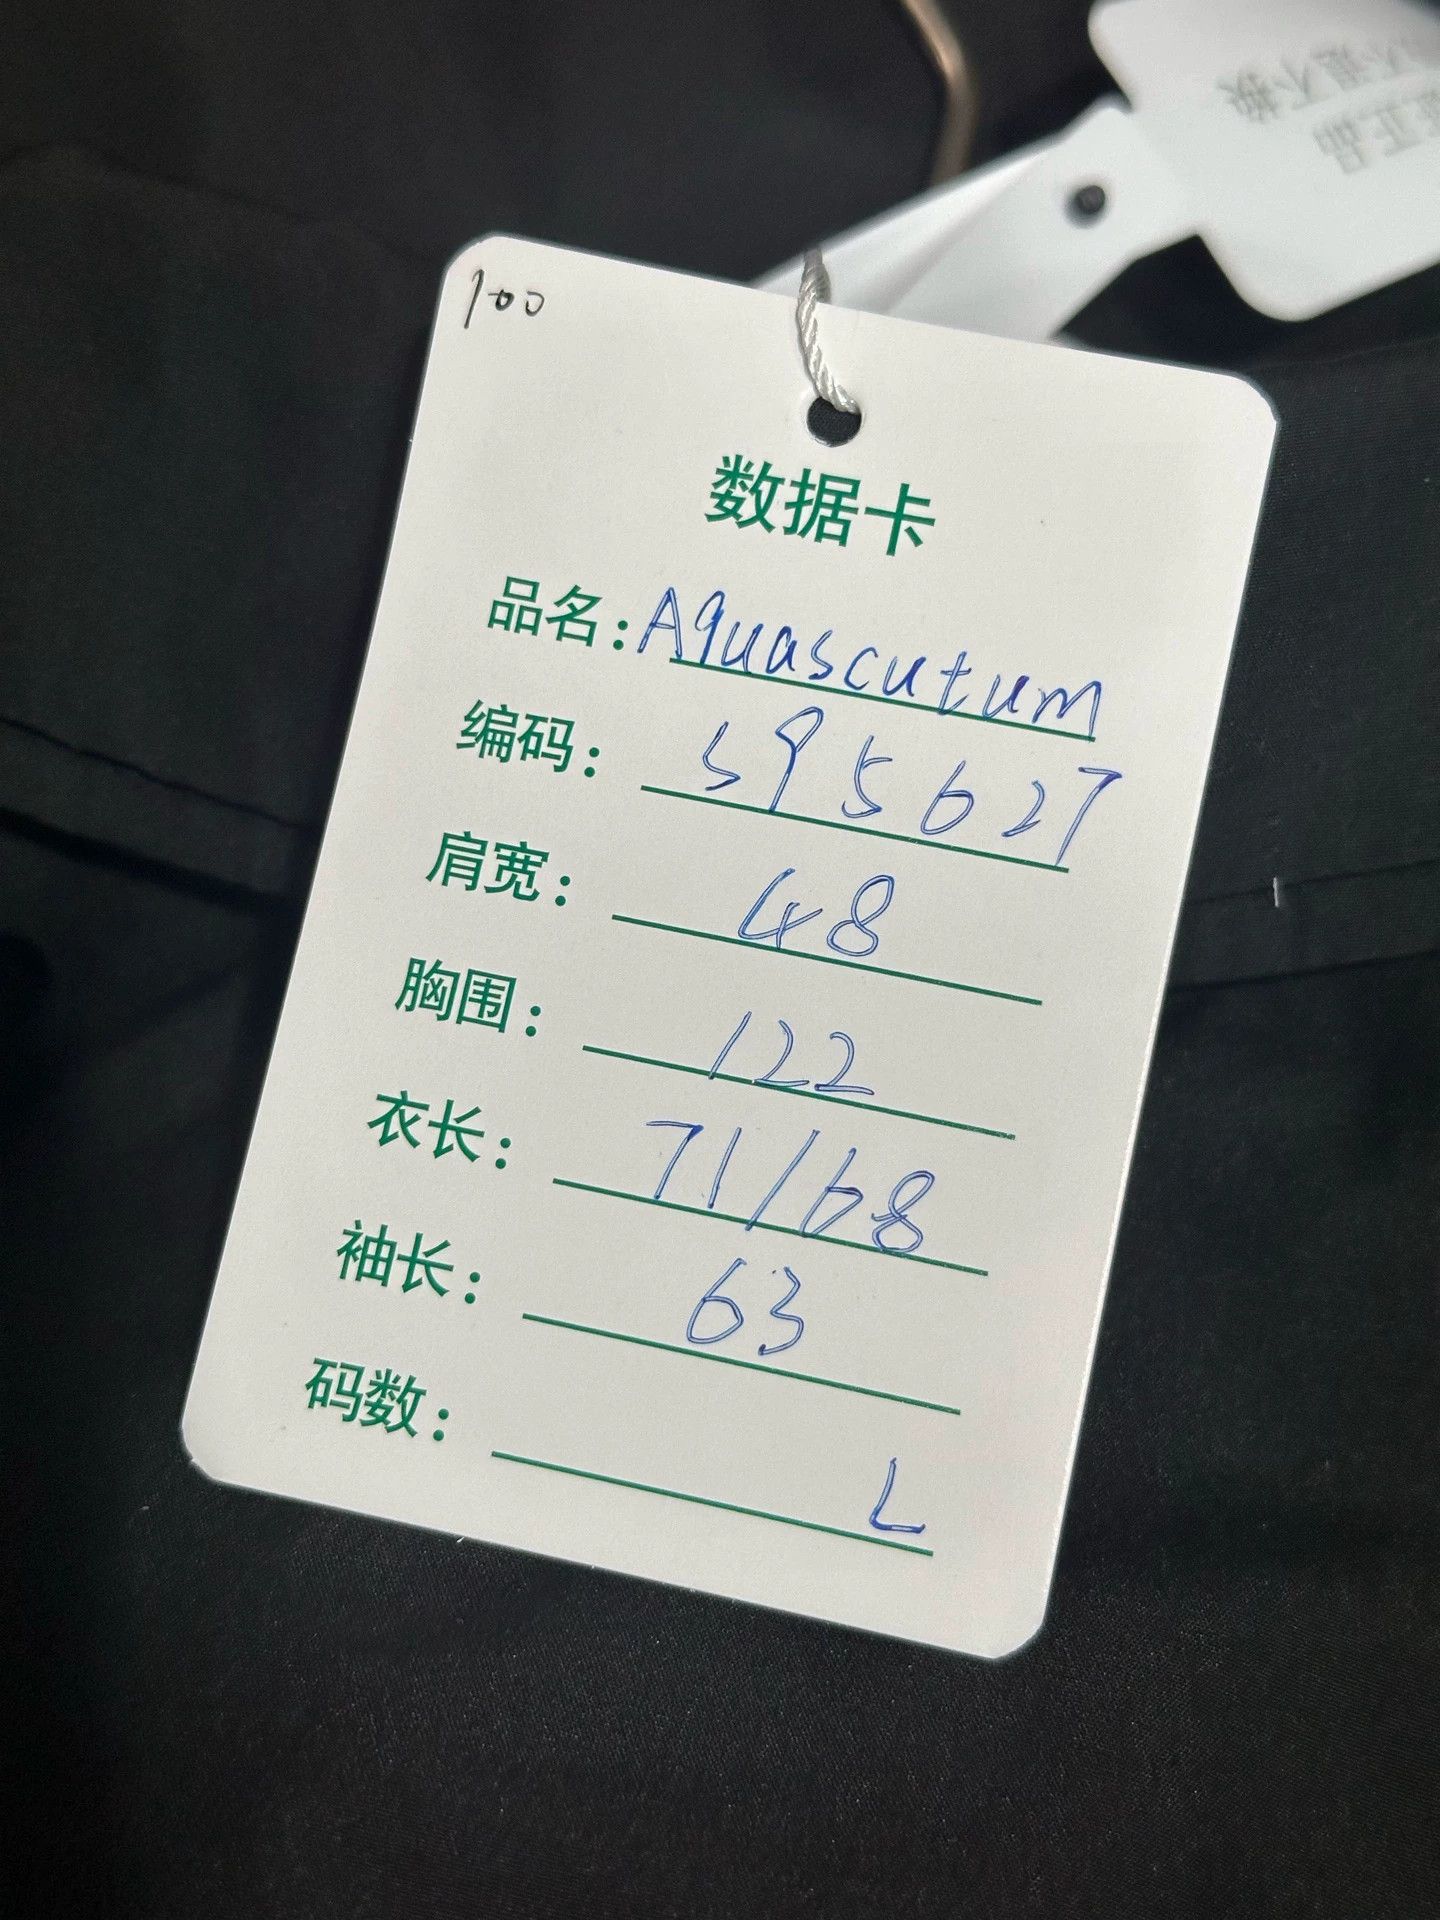 不退不换
正品
100
数据卡
品名：Aquascutum
编码：595627
肩宽：48
胸围：122
衣长：71/68
袖长：63
码数：L